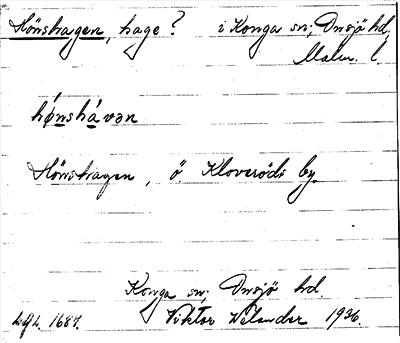 Hönshagen, hage? i Konga sn; Onsjö hd,
Malm. l
hǿnshávən
Hönshagen, ö Kloveröds by.
Konga sn; Onsjö hd.
1687. Viktor Welander 1936.